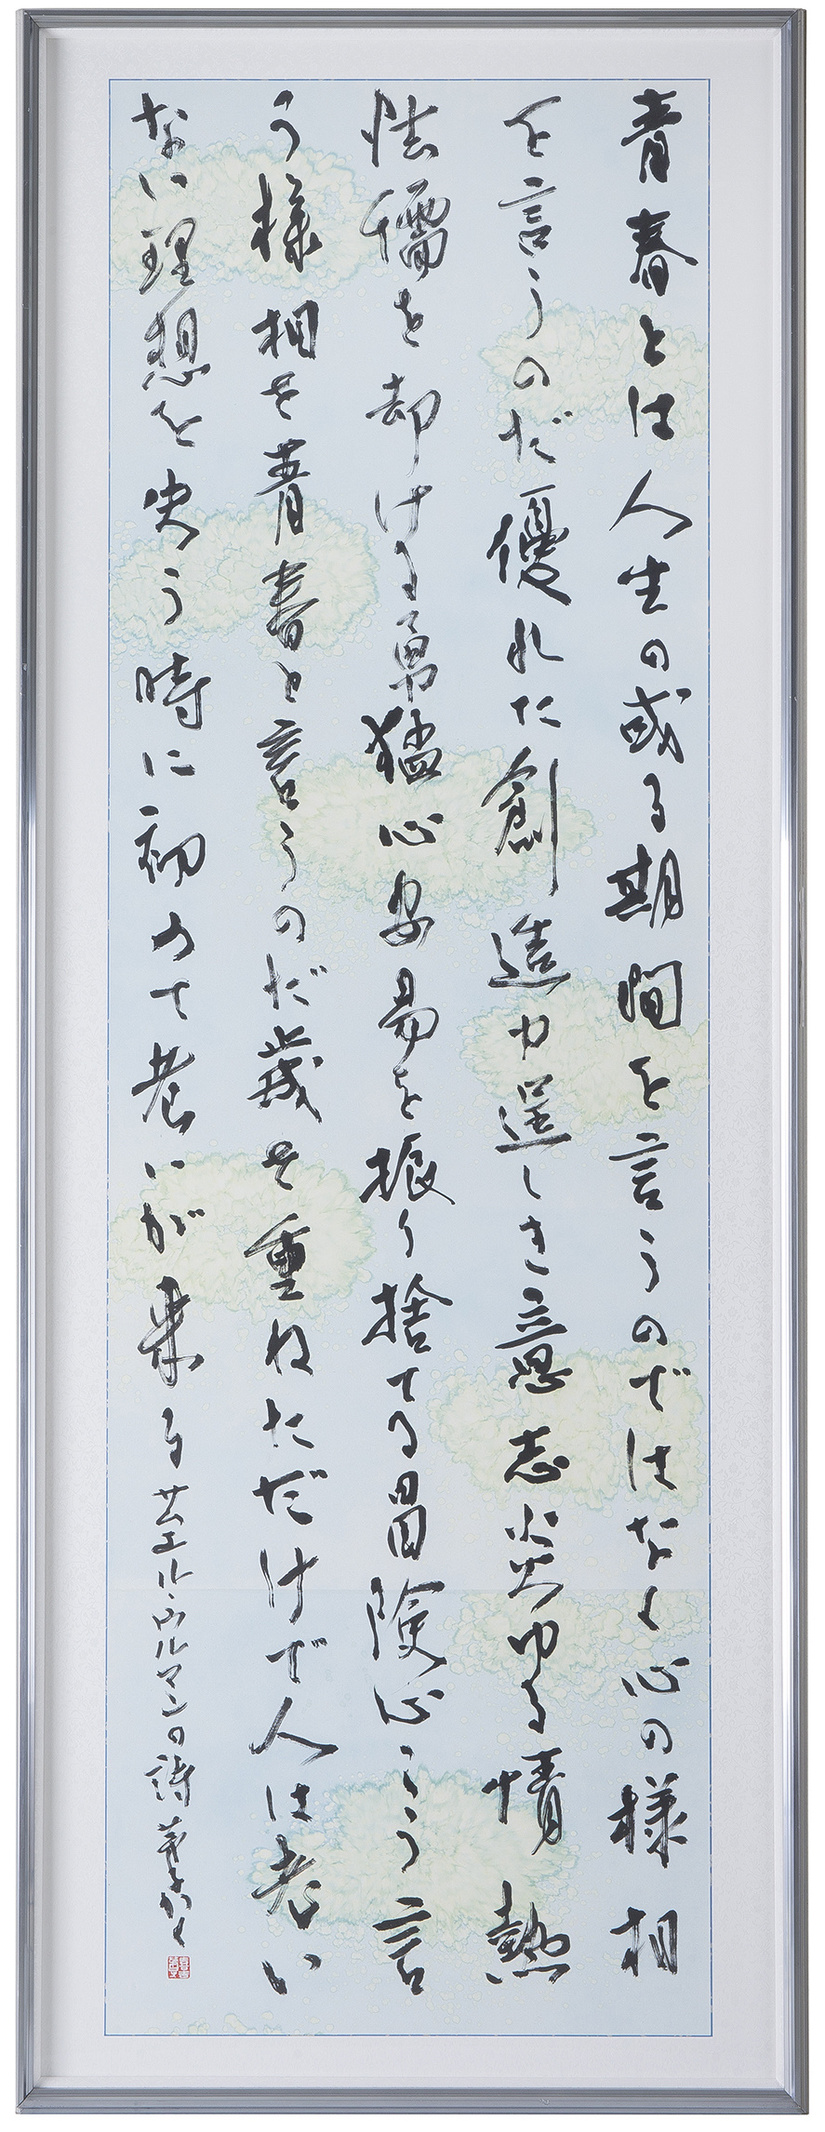 青春とは人生の或る期間を言うのではなく心の様相
を言うのだ優れた創造力逞しき意志炎ゆる情熱
怯懦を却ける勇猛心安易を振り捨てる冒険心こう言
う様相を青春と言うのだ歳を重ねただけで人は老い
ない理想を失う時に初めて老いが来るサムエル・ウルマンの詩